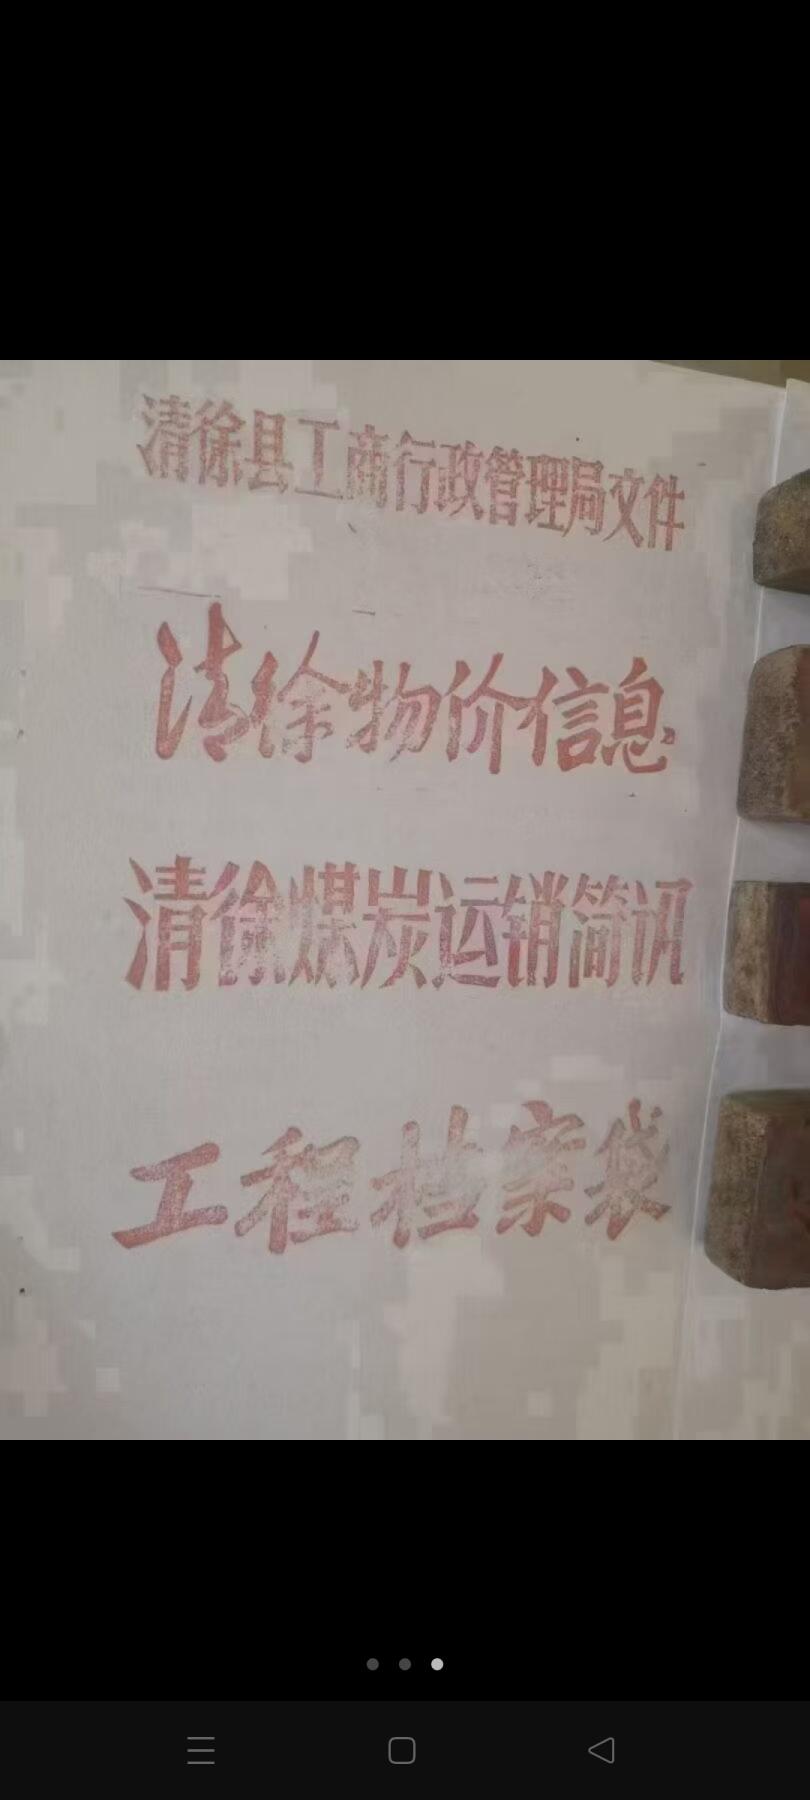 清徐县工商行政管理局文件
清徐物价信息
清徐煤炭运销简讯
工程档案袋